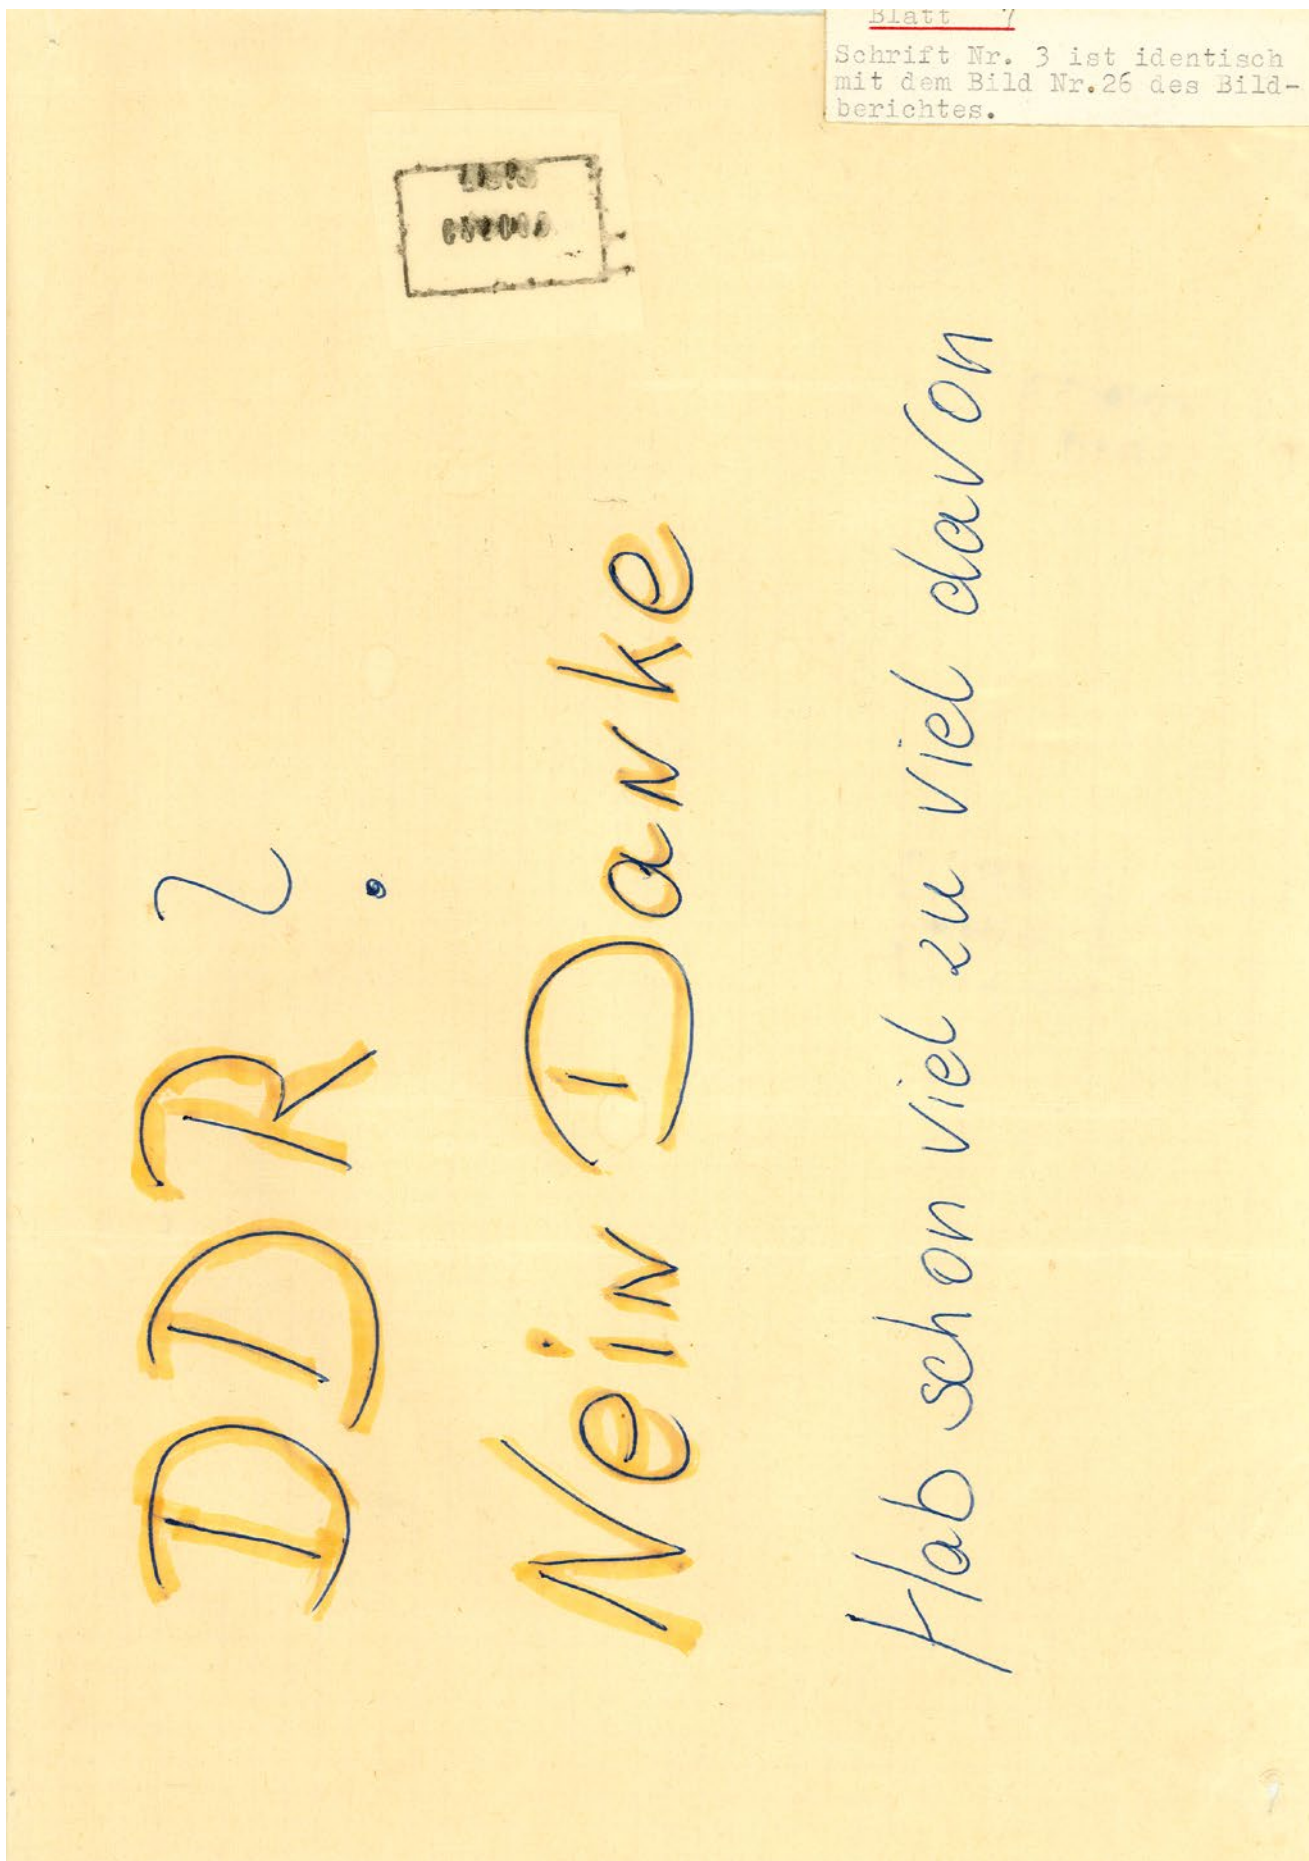 Blatt 7
Schrift Nr. 3 ist identisch
mit dem Bild Nr.26 des Bild-
berichtes.
DDR?
Nein Danke
Hab schon viel zu viel davon